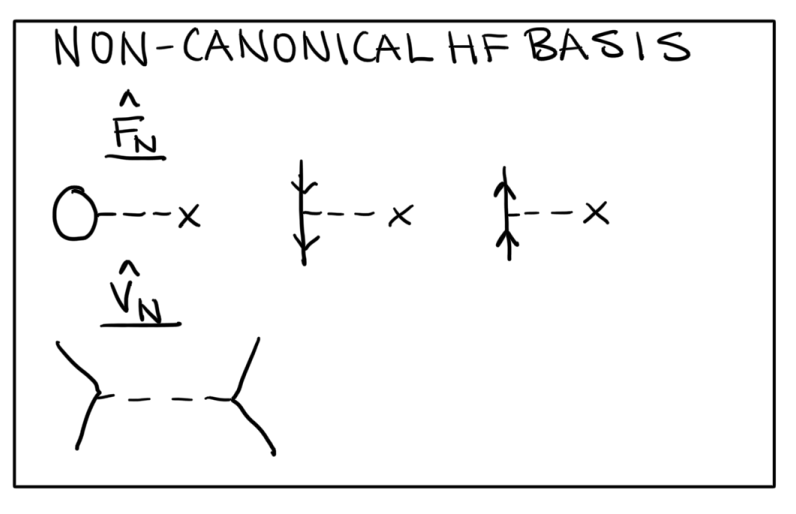 NON-CANONICAL HF BASIS
F̂_N
x x x
V̂_N